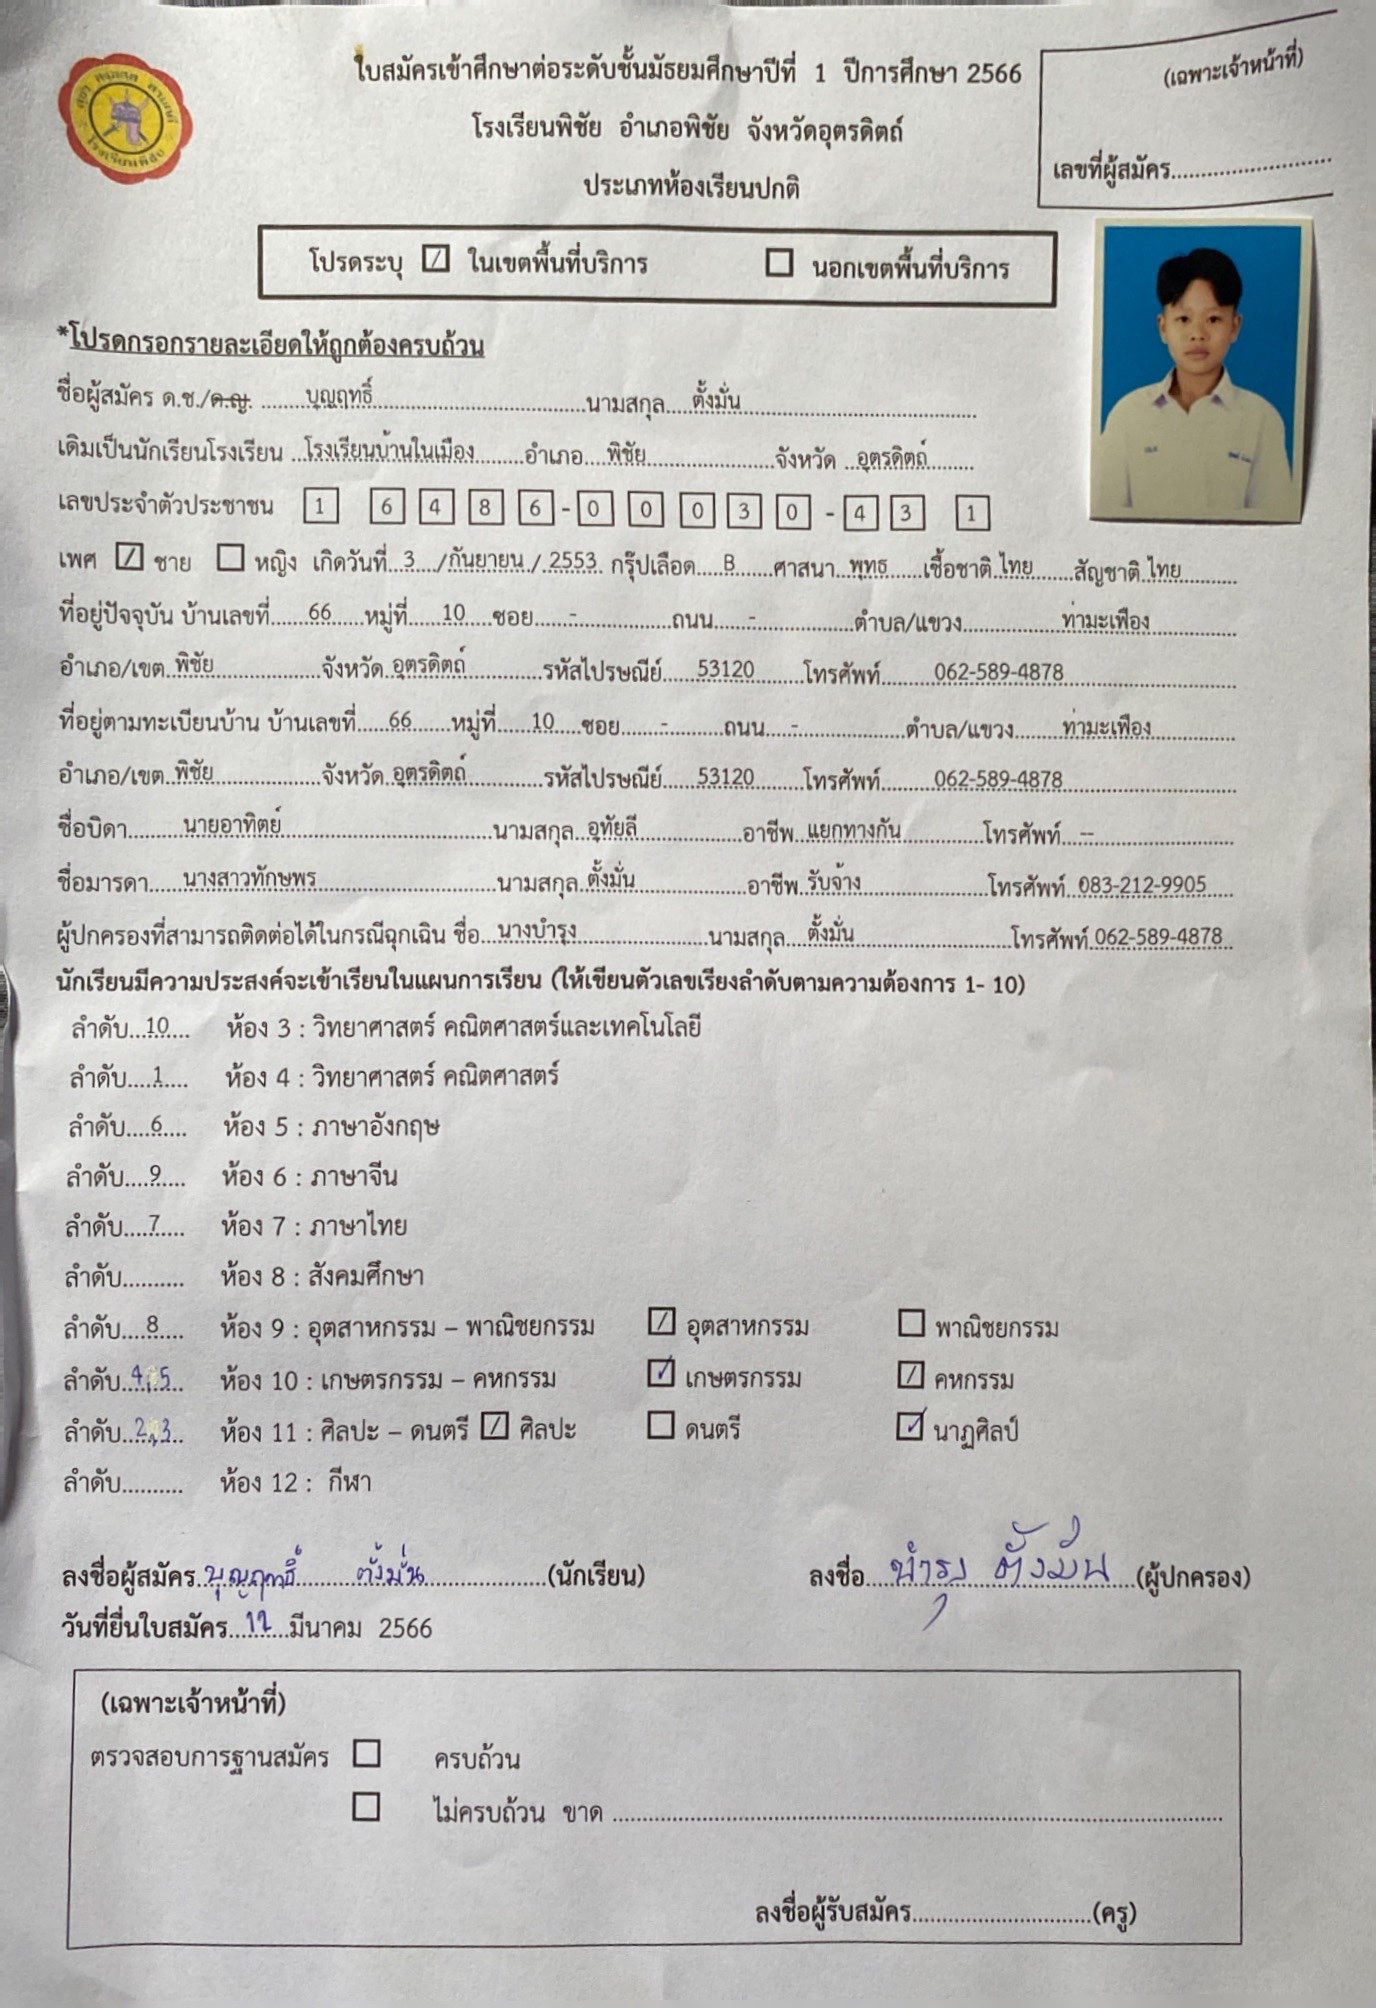 ใบสมัครเข้าศึกษาต่อระดับชั้นมัธยมศึกษาปีที่ 1 ปีการศึกษา 2566
(เฉพาะเจ้าหน้าที่)
โรงเรียนพิชัย อำเภอพิชัย จังหวัดอุตรดิตถ์
เลขที่ผู้สมัคร..........................
ประเภทห้องเรียนปกติ
โปรดระบุ ☑ ในเขตพื้นที่บริการ ☐ นอกเขตพื้นที่บริการ
*โปรดกรอกรายละเอียดให้ถูกต้องครบถ้วน
ชื่อผู้สมัคร ด.ช./ด.ญ. บุญฤทธิ์ นามสกุล ตั้งมั่น
เดิมเป็นนักเรียนโรงเรียน โรงเรียนบ้านในเมือง อำเภอ พิชัย จังหวัด อุตรดิตถ์
เลขประจำตัวประชาชน 1 6 4 8 6 - 0 0 0 3 0 - 4 3 1
เพศ ☑ ชาย ☐ หญิง เกิดวันที่ 3 /กันยายน / 2553 กรุ๊ปเลือด B ศาสนา พุทธ เชื้อชาติ ไทย สัญชาติ ไทย
ที่อยู่ปัจจุบัน บ้านเลขที่ 66 หมู่ที่ 10 ซอย - ถนน - ตำบล/แขวง ท่ามะเฟือง
อำเภอ/เขต พิชัย จังหวัด อุตรดิตถ์ รหัสไปรษณีย์ 53120 โทรศัพท์ 062-589-4878
ที่อยู่ตามทะเบียนบ้าน บ้านเลขที่ 66 หมู่ที่ 10 ซอย - ถนน - ตำบล/แขวง ท่ามะเฟือง
อำเภอ/เขต พิชัย จังหวัด อุตรดิตถ์ รหัสไปรษณีย์ 53120 โทรศัพท์ 062-589-4878
ชื่อบิดา นายอาทิตย์ นามสกุล อุทัยลี อาชีพ แยกทางกัน โทรศัพท์ --
ชื่อมารดา นางสาวทักษพร นามสกุล ตั้งมั่น อาชีพ รับจ้าง โทรศัพท์ 083-212-9905
ผู้ปกครองที่สามารถติดต่อได้ในกรณีฉุกเฉิน ชื่อ นางบำรุง นามสกุล ตั้งมั่น โทรศัพท์ 062-589-4878
นักเรียนมีความประสงค์จะเข้าเรียนในแผนการเรียน (ให้เขียนตัวเลขเรียงลำดับตามความต้องการ 1- 10)
ลำดับ 10 ห้อง 3 : วิทยาศาสตร์ คณิตศาสตร์และเทคโนโลยี
ลำดับ 1 ห้อง 4 : วิทยาศาสตร์ คณิตศาสตร์
ลำดับ 6 ห้อง 5 : ภาษาอังกฤษ
ลำดับ 9 ห้อง 6 : ภาษาจีน
ลำดับ 7 ห้อง 7 : ภาษาไทย
ลำดับ.......... ห้อง 8 : สังคมศึกษา
ลำดับ 8 ห้อง 9 : อุตสาหกรรม – พาณิชยกรรม ☑ อุตสาหกรรม ☐ พาณิชยกรรม
ลำดับ 4,5 ห้อง 10 : เกษตรกรรม – คหกรรม ☑ เกษตรกรรม ☑ คหกรรม
ลำดับ 2,3 ห้อง 11 : ศิลปะ – ดนตรี ☑ ศิลปะ ☐ ดนตรี ☑ นาฏศิลป์
ลำดับ.......... ห้อง 12 : กีฬา
ลงชื่อผู้สมัคร บุญฤทธิ์ ตั้งมั่น (นักเรียน) ลงชื่อ บำรุง ตั้งมั่น (ผู้ปกครอง)
วันที่ยื่นใบสมัคร 12 มีนาคม 2566
(เฉพาะเจ้าหน้าที่)
ตรวจสอบการฐานสมัคร ☐ ครบถ้วน
☐ ไม่ครบถ้วน ขาด
ลงชื่อผู้รับสมัคร..............................(ครู)